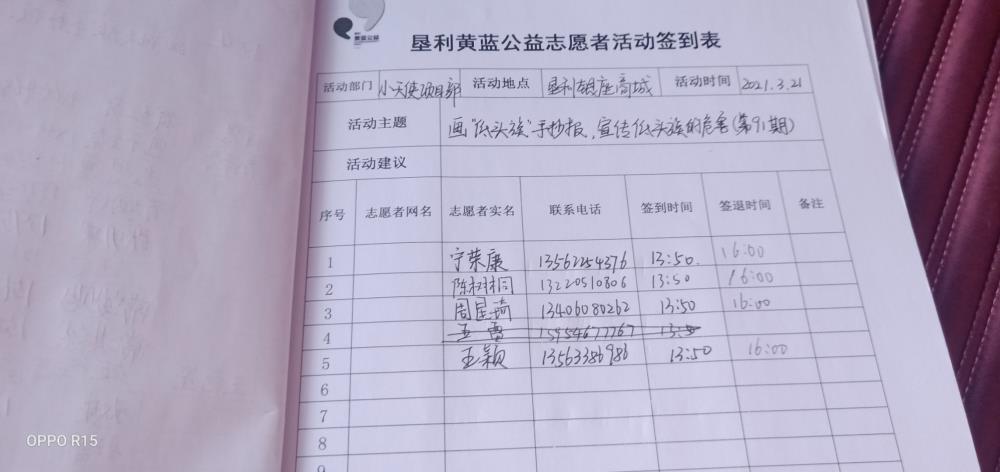 黄蓝公益
垦利黄蓝公益志愿者活动签到表
活动部门 小天使项目部 活动地点 垦利银座商城 活动时间 2021.3.21
活动主题 画"低头族"手抄报,宣传低头族的危害(第91期)
活动建议
序号 志愿者网名 志愿者实名 联系电话 签到时间 签退时间 备注
1 宁荣康 13562254376 13:50. 16:00
2 陈树桐 13220510806 13:50 16:00
3 周星琦 13406080262 13:50 16:00
4 15954677767 13:50
5 王颖 13563386986 13:50 16:00
6
7
8
9
OPPO R15